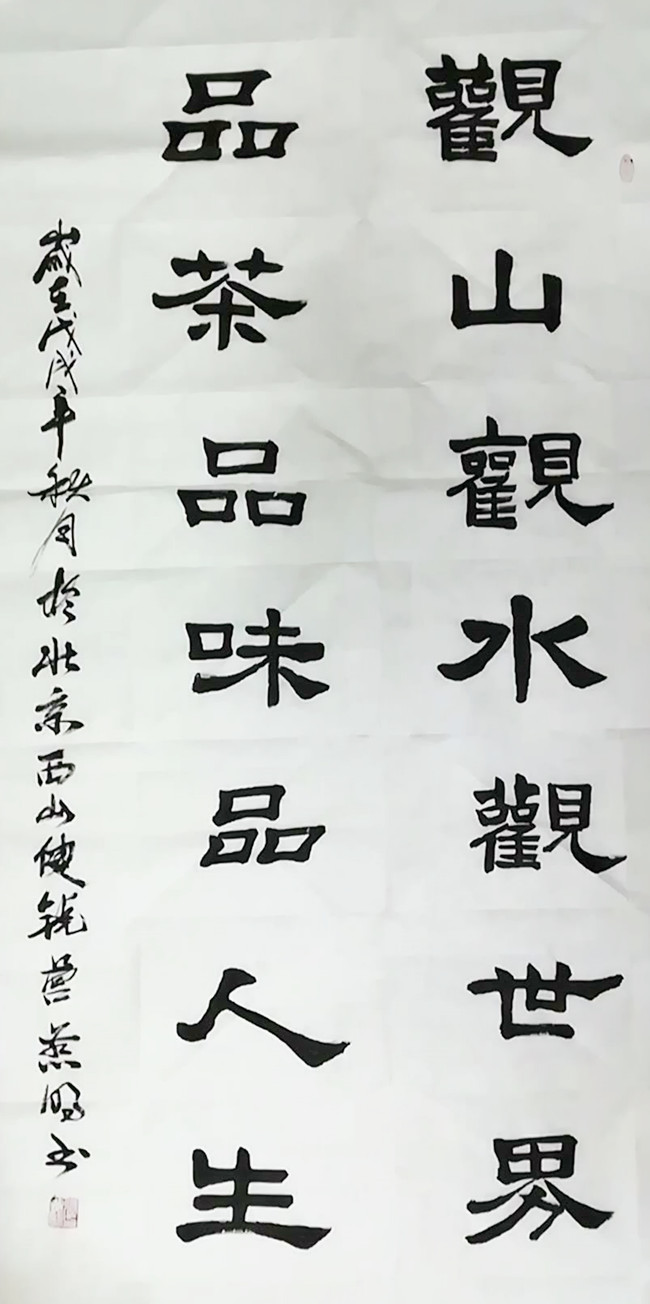 觀山觀水觀世界
品茶品味品人生
歲在戊戌年秋月於北京西山健銳營燕明书